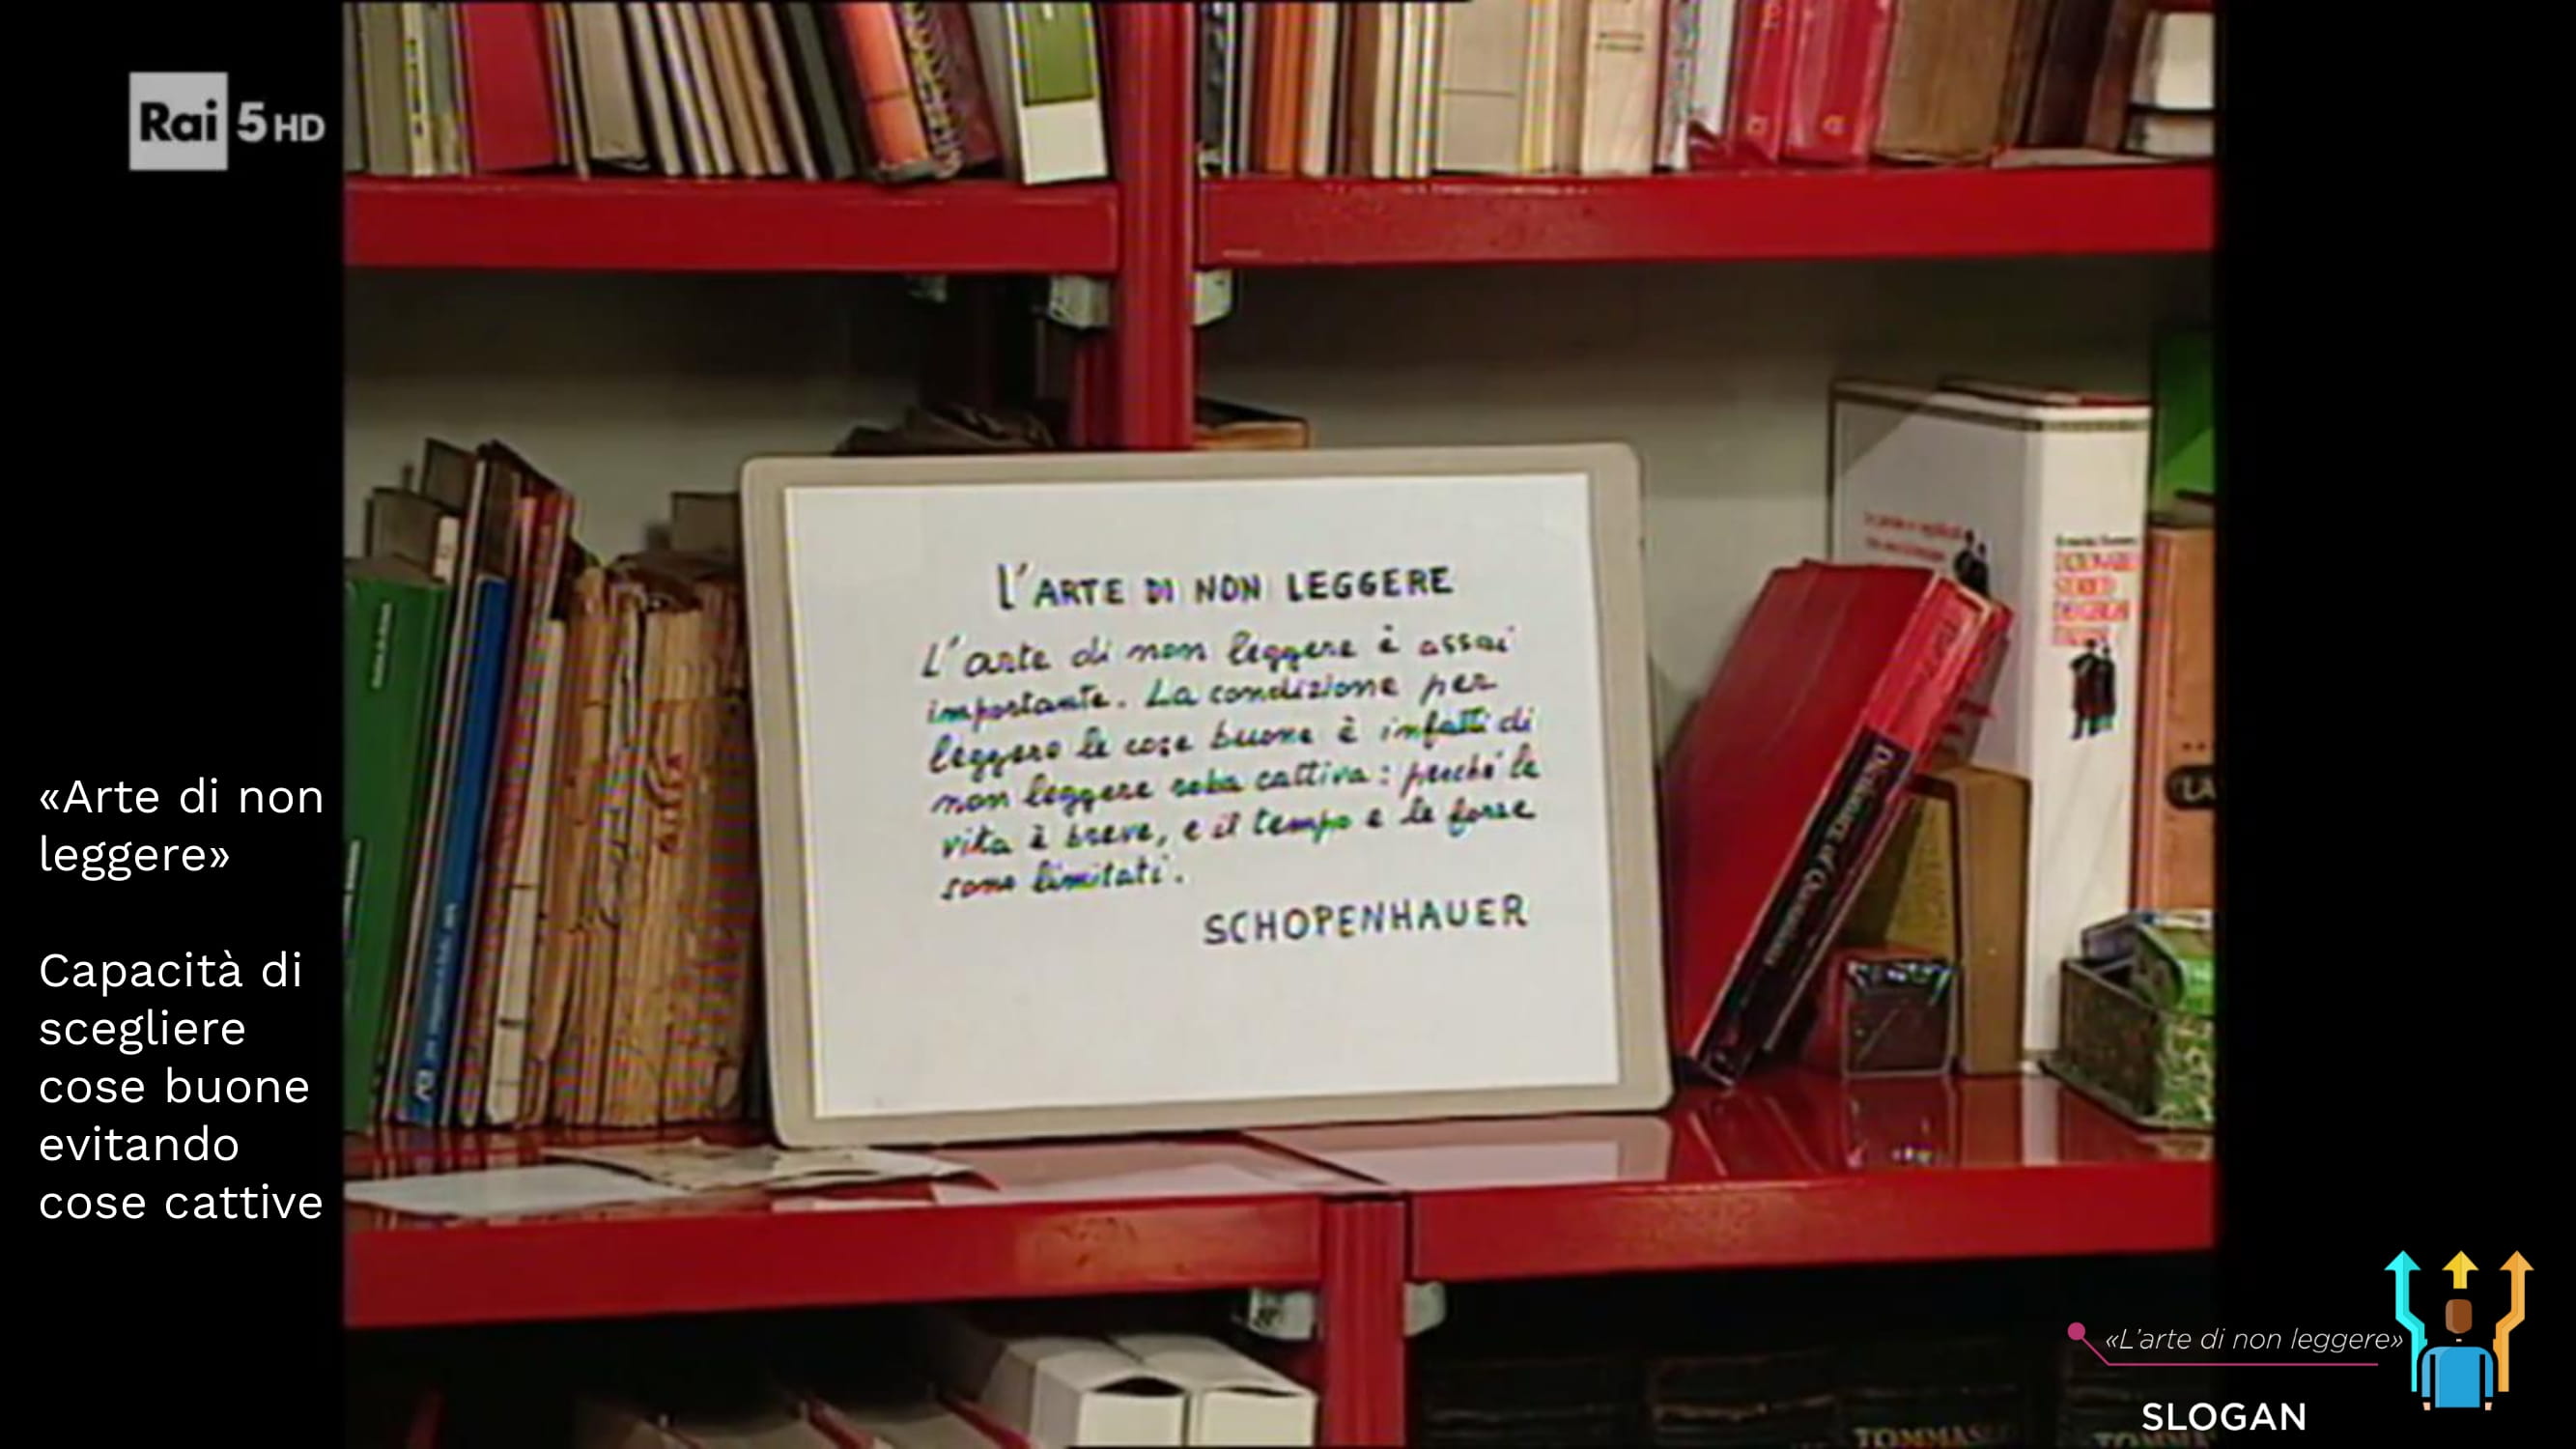 Rai 5 HD
L'ARTE DI NON LEGGERE
L'arte di non leggere è assai
importante. La condizione per
leggere le cose buone è infatti di
non leggere roba cattiva: perché la
vita è breve, e il tempo e le forze
sono limitati.
SCHOPENHAUER
«Arte di non
leggere»
Capacità di
scegliere
cose buone
evitando
cose cattive
Dictionary of Quotations
DIZIONARIO
STORICO
DEI GERGHI
ITALIANI
LA
«L'arte di non leggere»
SLOGAN
TOMMAS
TOMMA